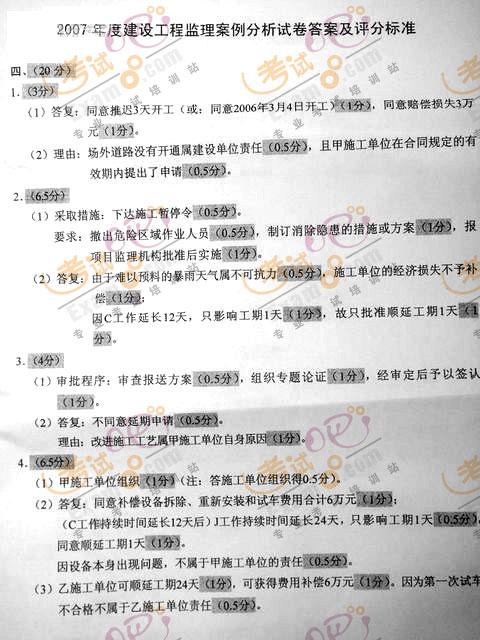 2007年度建设工程监理案例分析试卷答案及评分标准
四、（20分）
1.（3分）
（1）答复：同意推迟3天开工（或：同意2006年3月4日开工）（1分），同意赔偿损失3万
元（1分）。
（2）理由：场外道路没有开通属建设单位责任（0.5分），且甲施工单位在合同规定的有
效期内提出了申请（0.5分）。
2.（6.5分）
（1）采取措施：下达施工暂停令（0.5分）。
要求：撤出危险区域作业人员（0.5分），制订消除隐患的措施或方案（1分），报
项目监理机构批准后实施（1分）。
（2）答复：由于难以预料的暴雨天气属不可抗力（0.5分），施工单位的经济损失不予补
偿（1分）；
因C工作延长12天，只影响工期1天（1分），故只批准顺延工期1天（1
分）。
3.（4分）
（1）审批程序：审查报送方案（0.5分），组织专题论证（1分），经审定后予以签认
（1分）。
（2）答复：不同意延期申请（0.5分）。
理由：改进施工工艺属甲施工单位自身原因（1分）。
4.（6.5分）
（1）甲施工单位组织（1分）（注：答施工单位组织得0.5分）。
（2）答复：同意补偿设备拆除、重新安装和试车费用合计6万元（1分）；
（C工作持续时间延长12天后）J工作持续时间延长24天，只影响工期1天（0.5分），
同意顺延工期1天（1分）。
因设备本身出现问题，不属于甲施工单位的责任（0.5分）。
（3）乙施工单位可顺延工期24天（1分），可获得费用补偿6万元（1分）。因为第一次试车
不合格不属于乙施工单位责任（0.5分）。
考试
Exam.com
专业考试培训站